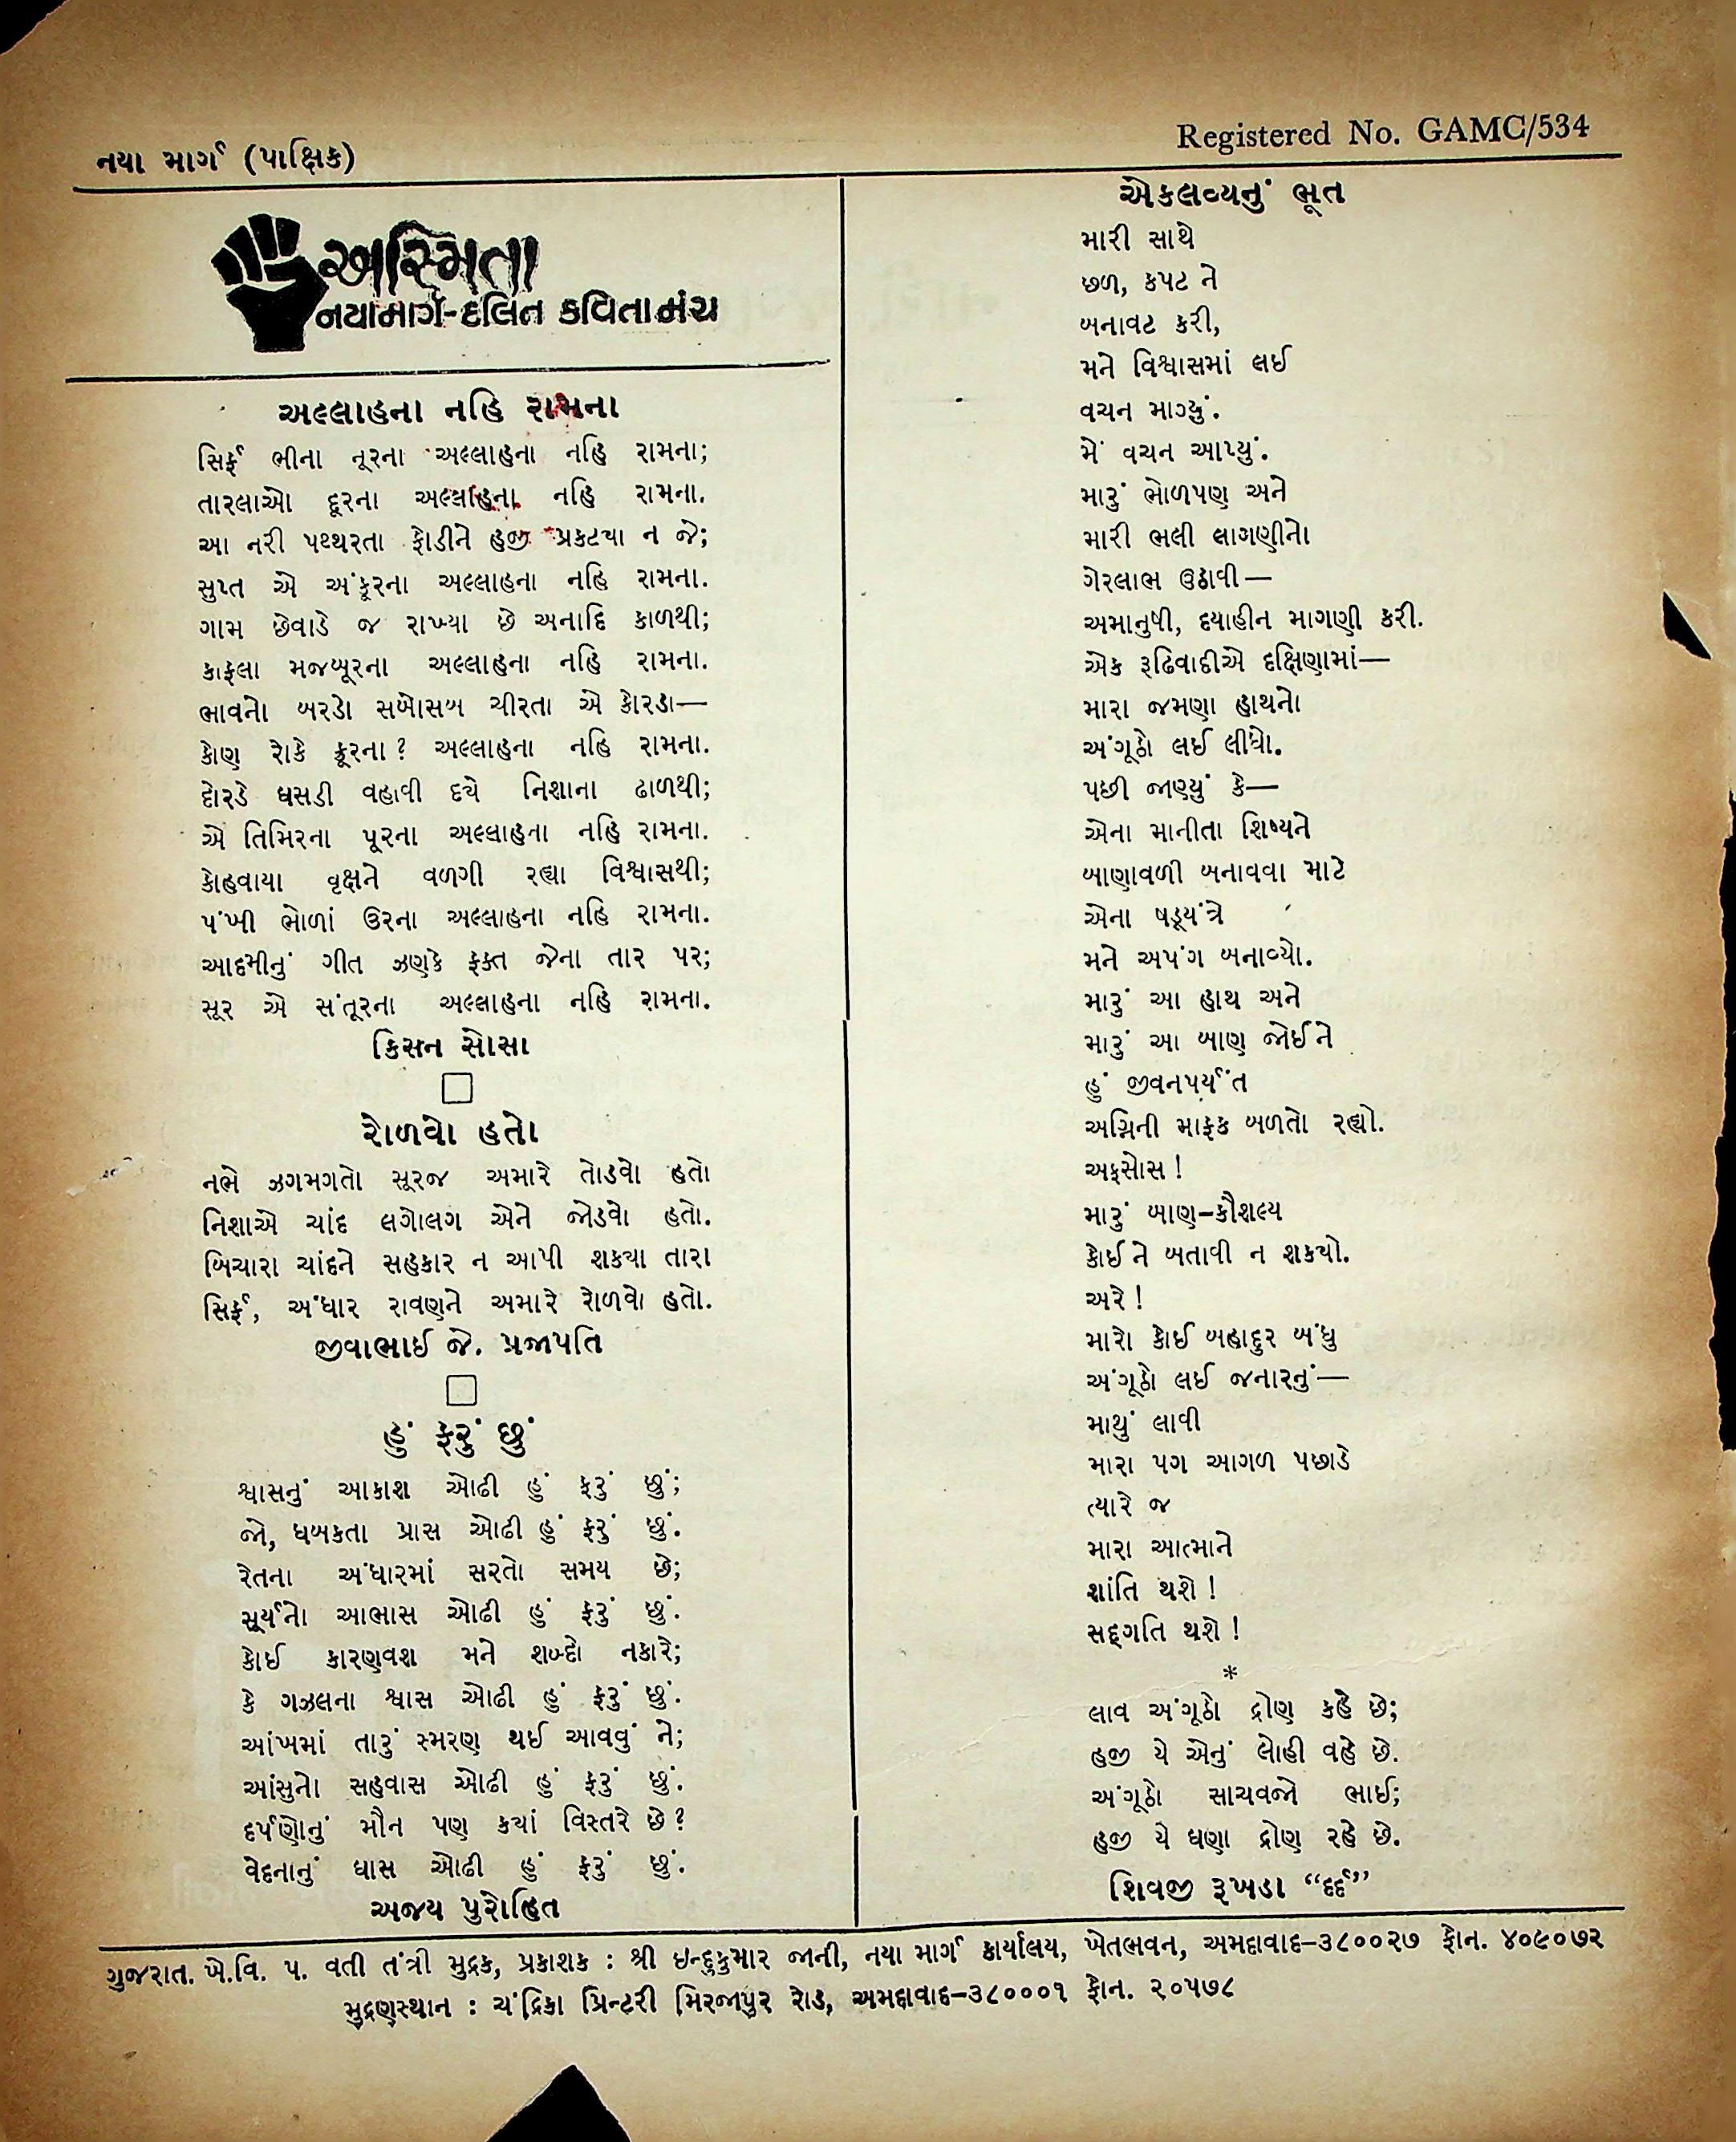 નયા માર્ગ (પાક્ષિક)
Registered No. GAMC/534
અસ્મિતા
નયામાર્ગ-દલિત કવિતામંચ
અલ્લાહના નહિ રામના
સિર્ફ ભીના નૂરના અલ્લાહના નહિ રામના;
તારલાઓ દૂરના અલ્લાહના નહિ રામના.
આ નરી પથ્થરતા ફોડીને હજી પ્રકટયા ન જે;
સુપ્ત એ અંકૂરના અલ્લાહના નહિ રામના.
ગામ છેવાડે જ રાખ્યા છે અનાદિ કાળથી;
કાફલા મજબૂરના અલ્લાહના નહિ રામના.
ભાવનો બરડો સબોસબ ચીરતા એ કોરડા—
કોણ રોકે ક્રૂરના? અલ્લાહના નહિ રામના.
દોરડે ઘસડી વહાવી દયે નિશાના ઢાળથી;
એ તિમિરના પૂરના અલ્લાહના નહિ રામના.
કોહવાયા વૃક્ષને વળગી રહ્યા વિશ્વાસથી;
પંખી ભોળાં ઉરના અલ્લાહના નહિ રામના.
આદમીનું ગીત ઝણકે ફક્ત જેના તાર પર;
સૂર એ સંતૂરના અલ્લાહના નહિ રામના.
કિસન સોસા
રોળવો હતો
નભે ઝગમગતો સૂરજ અમારે તોડવો હતો
નિશાએ ચાંદ લગોલગ એને જોડવો હતો.
બિચારા ચાંદને સહકાર ન આપી શકયા તારા
સિર્ફ, અંધાર રાવણને અમારે રોળવો હતો.
જીવાભાઈ જે. પ્રજાપતિ
હું ફરું છું
શ્વાસનું આકાશ ઓઢી હું ફરું છું;
જો, ધબકતા પ્રાસ ઓઢી હું ફરું છું.
રેતના અંધારમાં સરતો સમય છે;
સૂર્યનો આભાસ ઓઢી હું ફરું છું.
કોઈ કારણવશ મને શબ્દો નકારે;
કે ગઝલના શ્વાસ ઓઢી હું ફરું છું.
આંખમાં તારું સ્મરણ થઈ આવવું ને;
આંસુનો સહવાસ ઓઢી હું ફરું છું.
દર્પણોનું મૌન પણ કયાં વિસ્તરે છે?
વેદનાનું ઘાસ ઓઢી હું ફરું છું.
અજય પુરોહિત
એકલવ્યનું ભૂત
મારી સાથે
છળ, કપટ ને
બનાવટ કરી,
મને વિશ્વાસમાં લઈ
વચન માગ્યું.
મેં વચન આપ્યું.
મારું ભોળપણ અને
મારી ભલી લાગણીનો
ગેરલાભ ઉઠાવી—
અમાનુષી, દયાહીન માગણી કરી.
એક રૂઢિવાદીએ દક્ષિણામાં—
મારા જમણા હાથનો
અંગૂઠો લઈ લીધો.
પછી જાણ્યું કે—
એના માનીતા શિષ્યને
બાણાવળી બનાવવા માટે
એના ષડ્યંત્રે
મને અપંગ બનાવ્યો.
મારું આ હાથ અને
મારું આ બાણ જોઈને
હું જીવનપર્યંત
અગ્નિની માફક બળતો રહ્યો.
અફસોસ!
મારું બાણ-કૌશલ્ય
કોઈને બતાવી ન શકયો.
અરે!
મારો કોઈ બહાદુર બંધુ
અંગૂઠો લઈ જનારનું—
માથું લાવી
મારા પગ આગળ પછાડે
ત્યારે જ
મારા આત્માને
શાંતિ થશે!
સદ્‌ગતિ થશે!
*
લાવ અંગૂઠો દ્રોણ કહે છે;
હજી યે એનું લોહી વહે છે.
અંગૂઠો સાચવજો ભાઈ;
હજી યે ઘણા દ્રોણ રહે છે.
શિવજી રૂખડા “દર્દ”
ગુજરાત. ખે.વિ. પ. વતી તંત્રી મુદ્રક, પ્રકાશક : શ્રી ઇન્દુકુમાર જાની, નયા માર્ગ કાર્યાલય, ખેતભવન, અમદાવાદ-૩૮૦૦૨૭ ફોન. ૪૦૯૦૭૨
મુદ્રણસ્થાન : ચંદ્રિકા પ્રિન્ટરી મિરજાપુર રોડ, અમદાવાદ-૩૮૦૦૦૧ ફોન. ૨૦૫૭૮